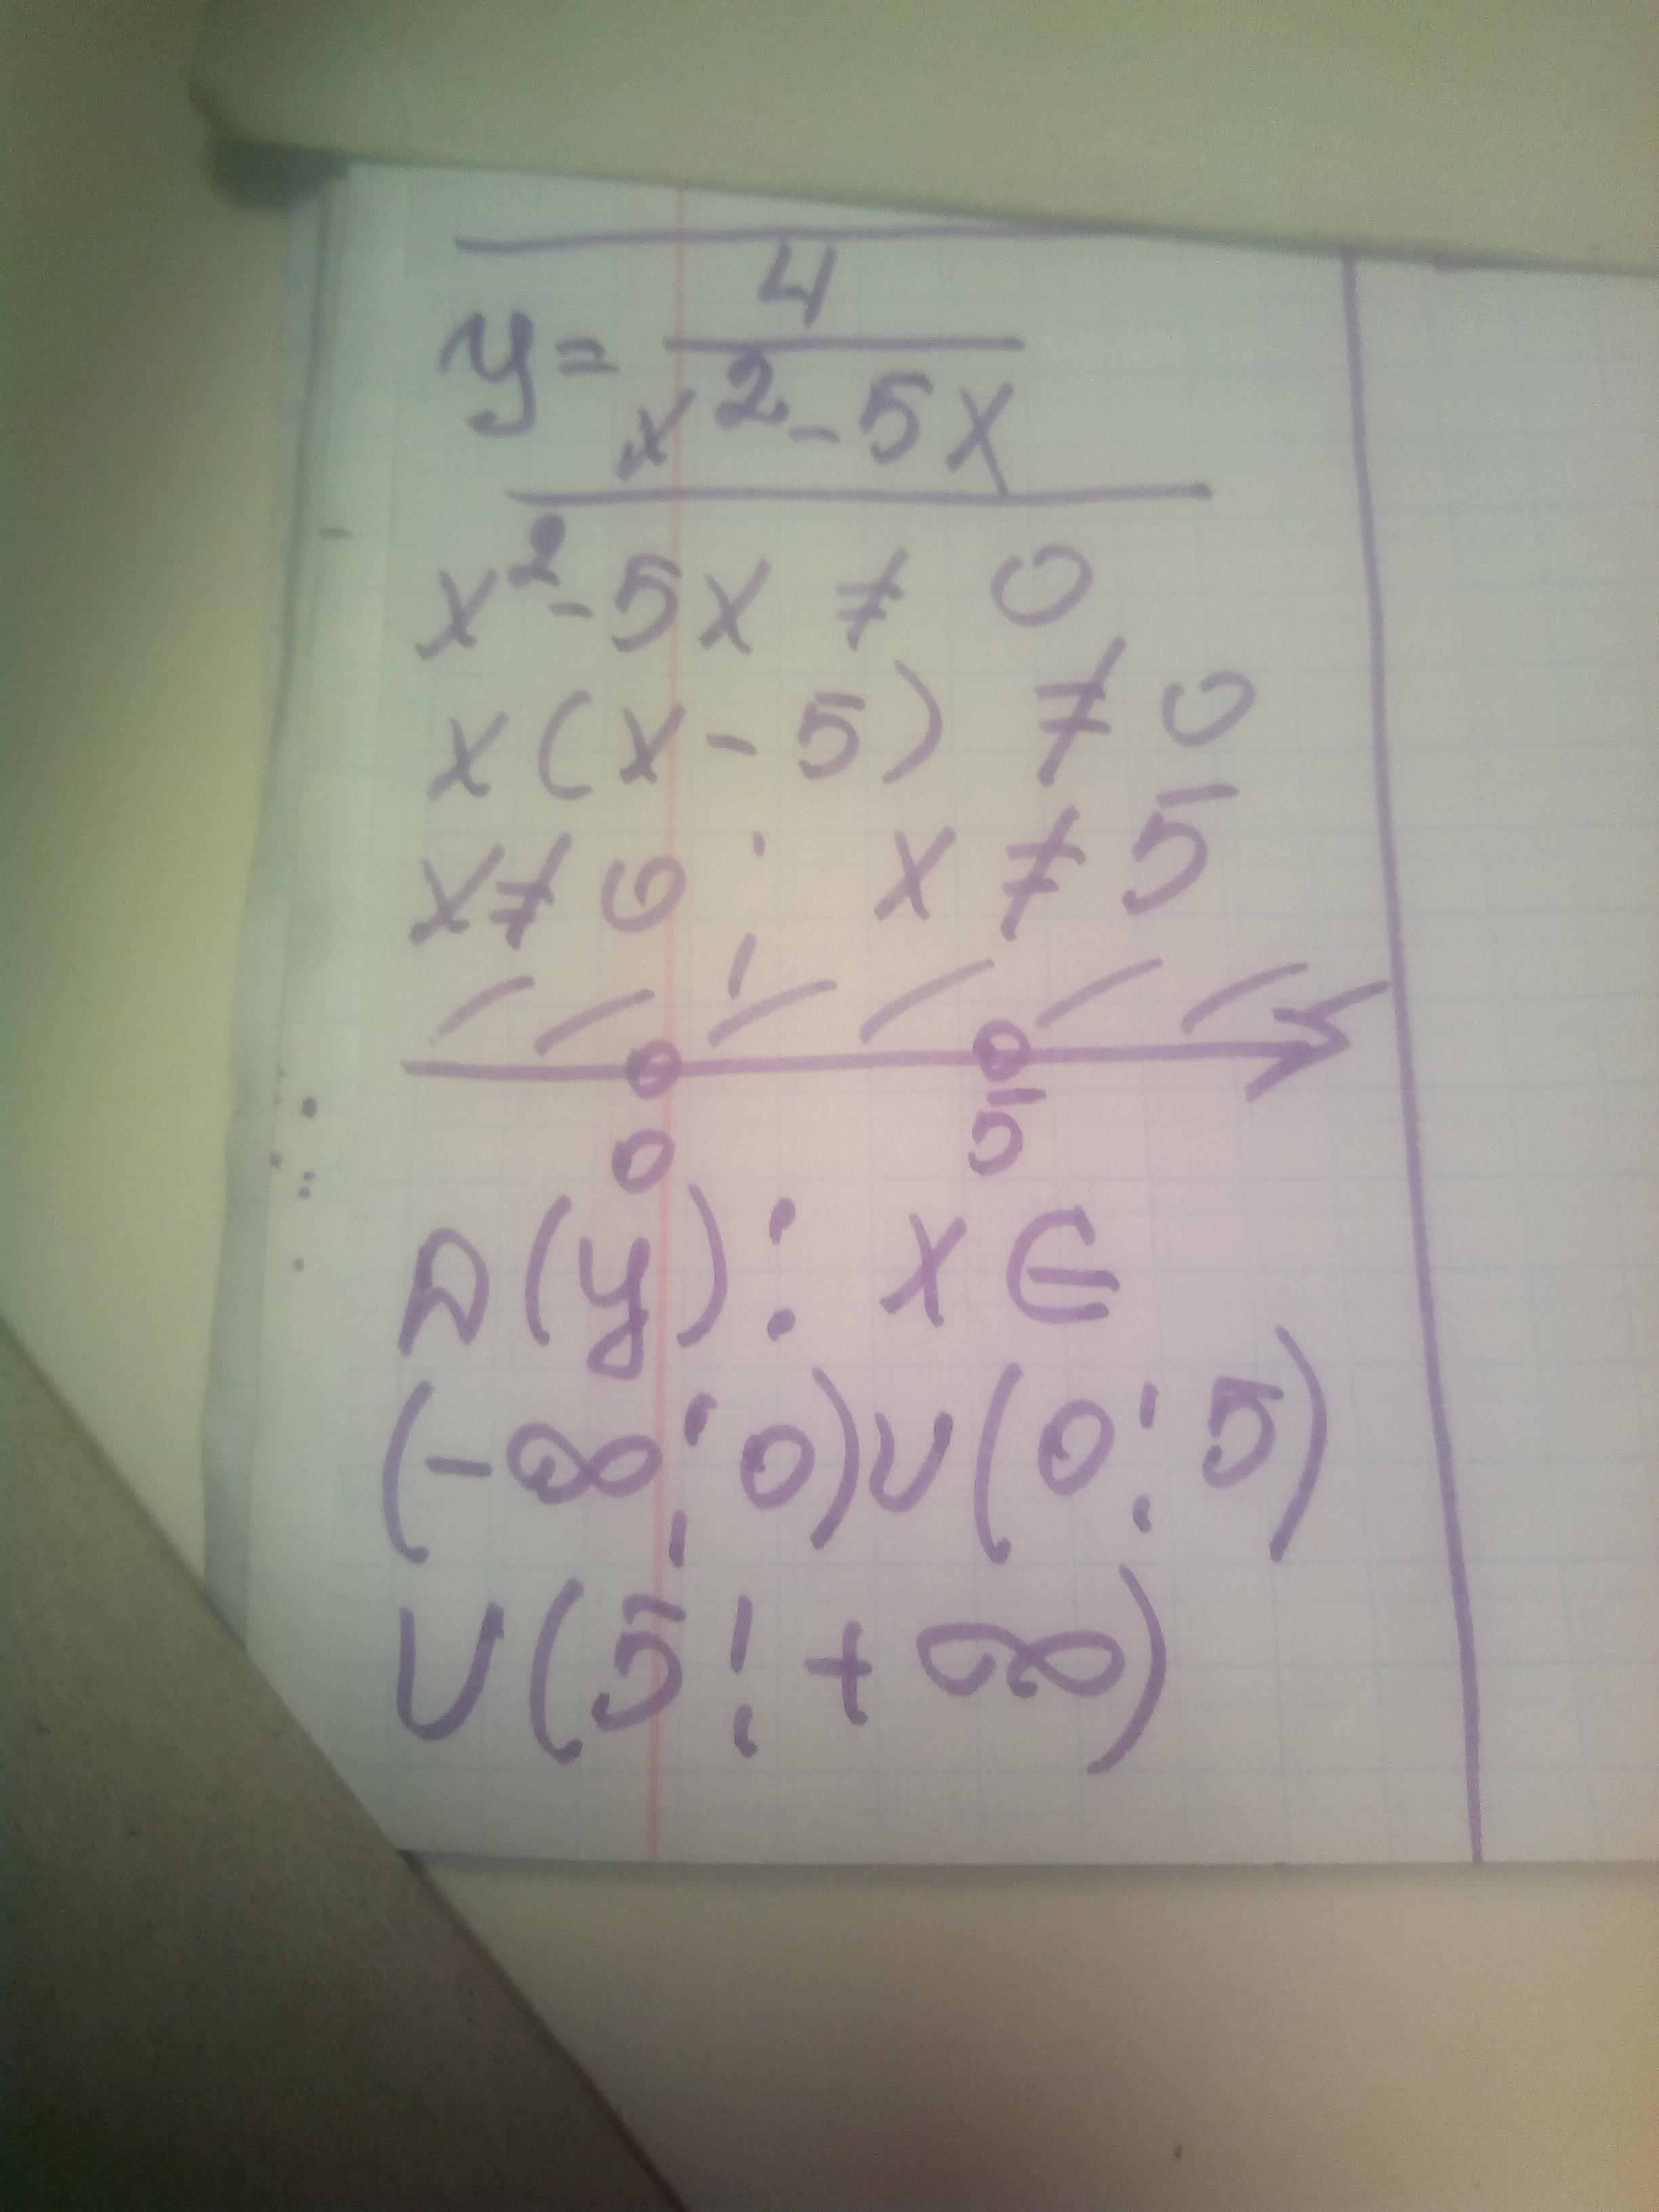 y = 4/(x² - 5x)
x² - 5x ≠ 0
x(x - 5) ≠ 0
x ≠ 0 ; x ≠ 5
0 5
D(y): x ∈
(-∞; 0) ∪ (0; 5)
∪ (5; +∞)